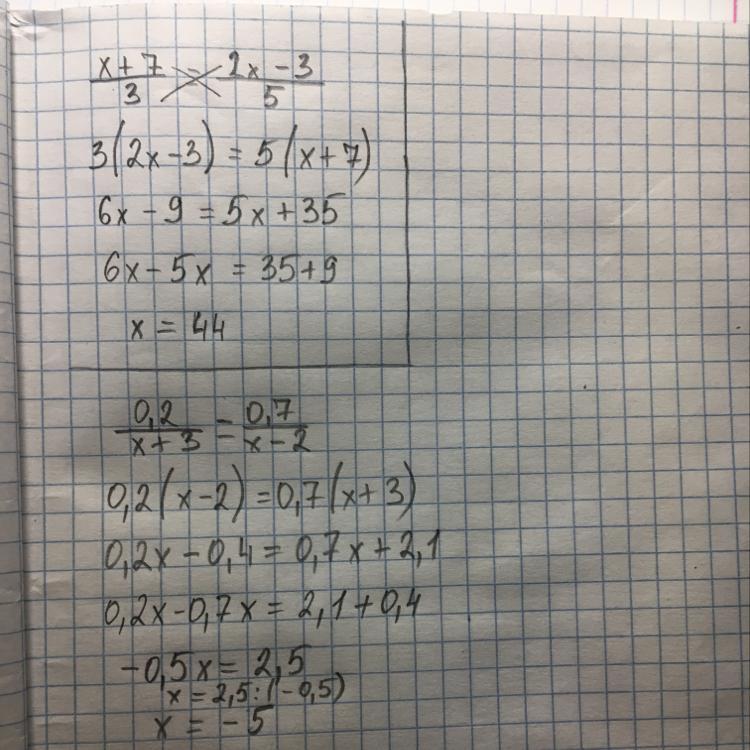 x+7 / 3 = 2x-3 / 5
3(2x-3) = 5(x+7)
6x-9 = 5x+35
6x-5x = 35+9
x = 44
0,2 / x+3 = 0,7 / x-2
0,2(x-2) = 0,7(x+3)
0,2x-0,4 = 0,7x+2,1
0,2x-0,7x = 2,1+0,4
-0,5x = 2,5
x = 2,5:(-0,5)
x = -5